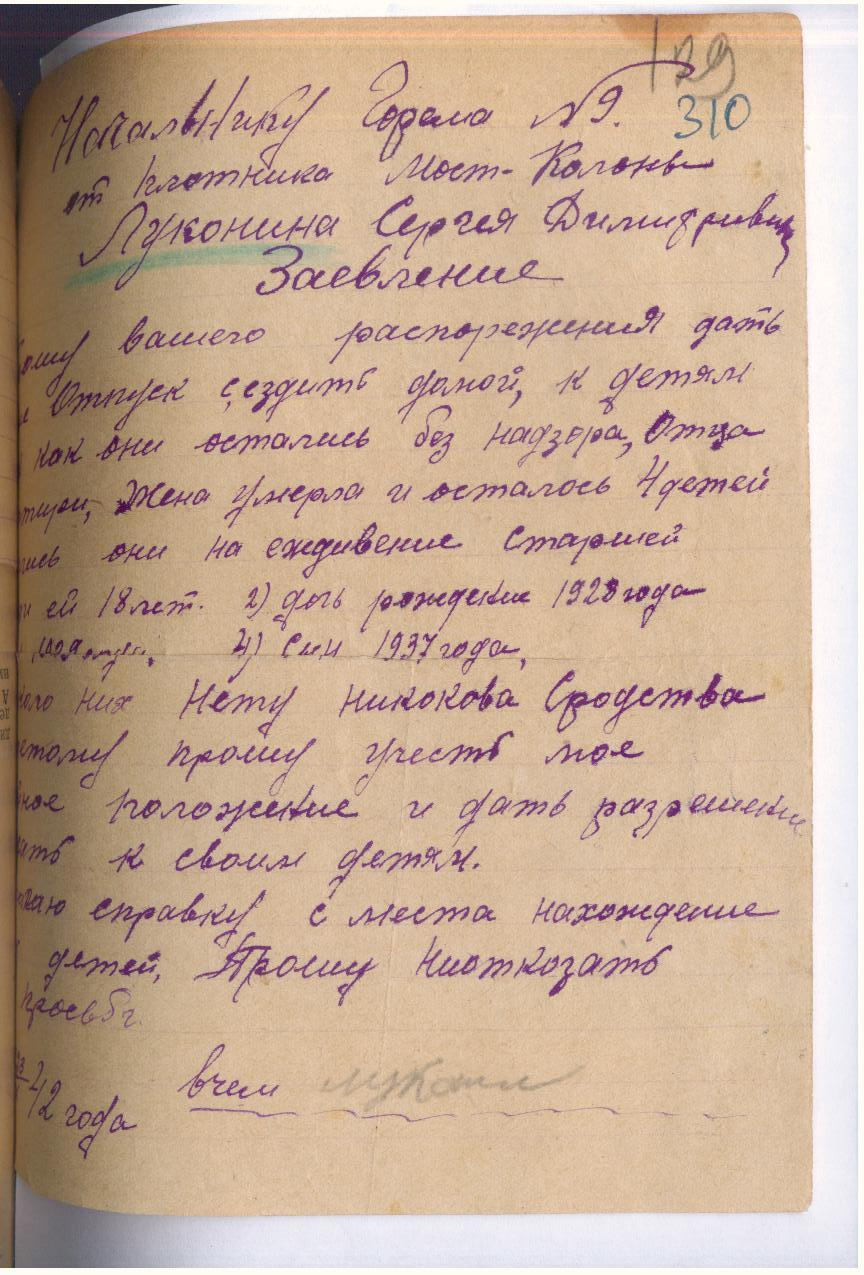 129
310
Начальнику Горема №9.
от плотника Мост-Колоны
Луконина Сергея Димитривич
Заевление
ошу вашего распорежения дать
Отпуск сездить домой, к детям
как они остались без надзора, Отца
тири, Жена умерла и осталось 4 детей
лись они на еждивение старшей
ей 18 лет. 2) дочь рождение 1928 года
4) Син 1937 года,
коло них Нету Никокова Сродства
етому прошу учесть мое
ное положение и дать разрешение
ить к своим детям.
гаю справку с места нахождение
детей, Прошу Ниоткозать
Просьбе
42 года вчем